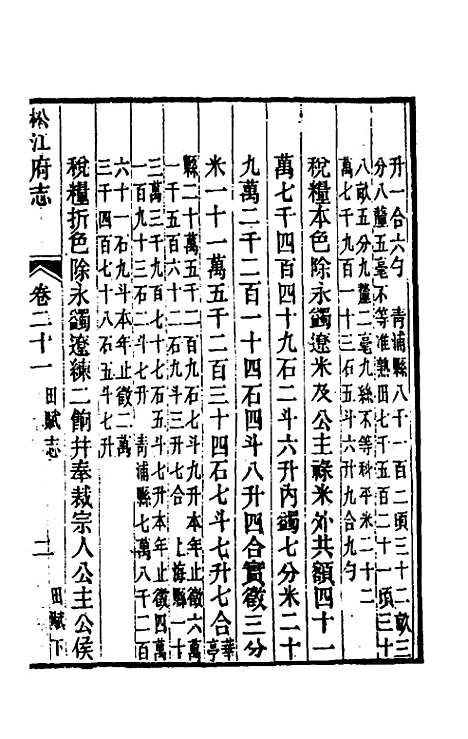 升一合六勺　青浦縣八千一百二頃三十二畝三
分八釐五毫不等准熟田七千五百二十一頃三十
八畝五分九釐二毫九絲不等科平米二十二
萬七千九百一十三石五斗六升九合九勺
稅糧本色除永蠲遼米及公主祿米外共額四十一
萬七千四百四十九石二斗六升內蠲七分米二十
九萬二千二百一十四石四斗八升四合實徵三分
米一十一萬五千二百三十四石七斗七升七合華亭
縣二十萬五千二百九石七斗九升本年止徵六萬
一千五百六十二石九斗三升七合　上海縣一十
三萬三千九百七十七石五斗七升本年止徵四萬
一百九十三石二斗七升　青浦縣七萬八千二百
六十一石九斗本年止徵二萬
三千四百七十八石五斗七升
稅糧折色除永蠲遼練二餉并奉裁宗人公主公侯
松江府志
卷二十一
田賦志
二
田賦下